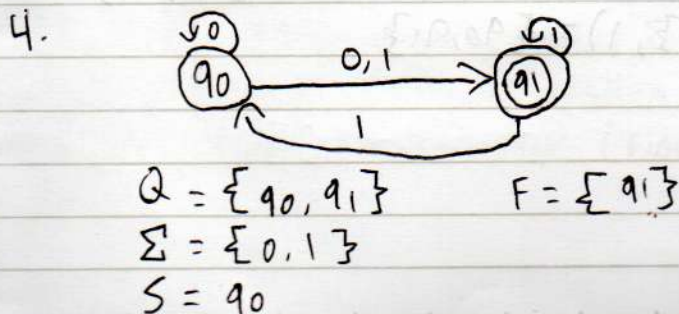 4.
0 1
q0 0,1 q1
1
Q = {q0, q1} F = {q1}
Σ = {0, 1}
S = q0